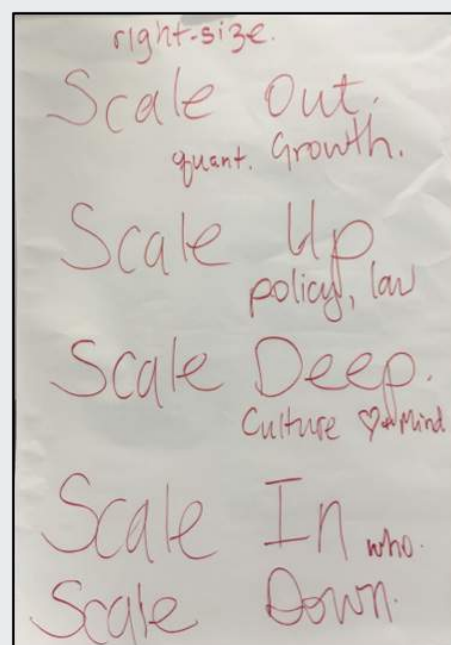 right-size.
Scale Out.
quant. Growth.
Scale Up
policy, law
Scale Deep.
Culture ♡+Mind
Scale In who.
Scale Down.